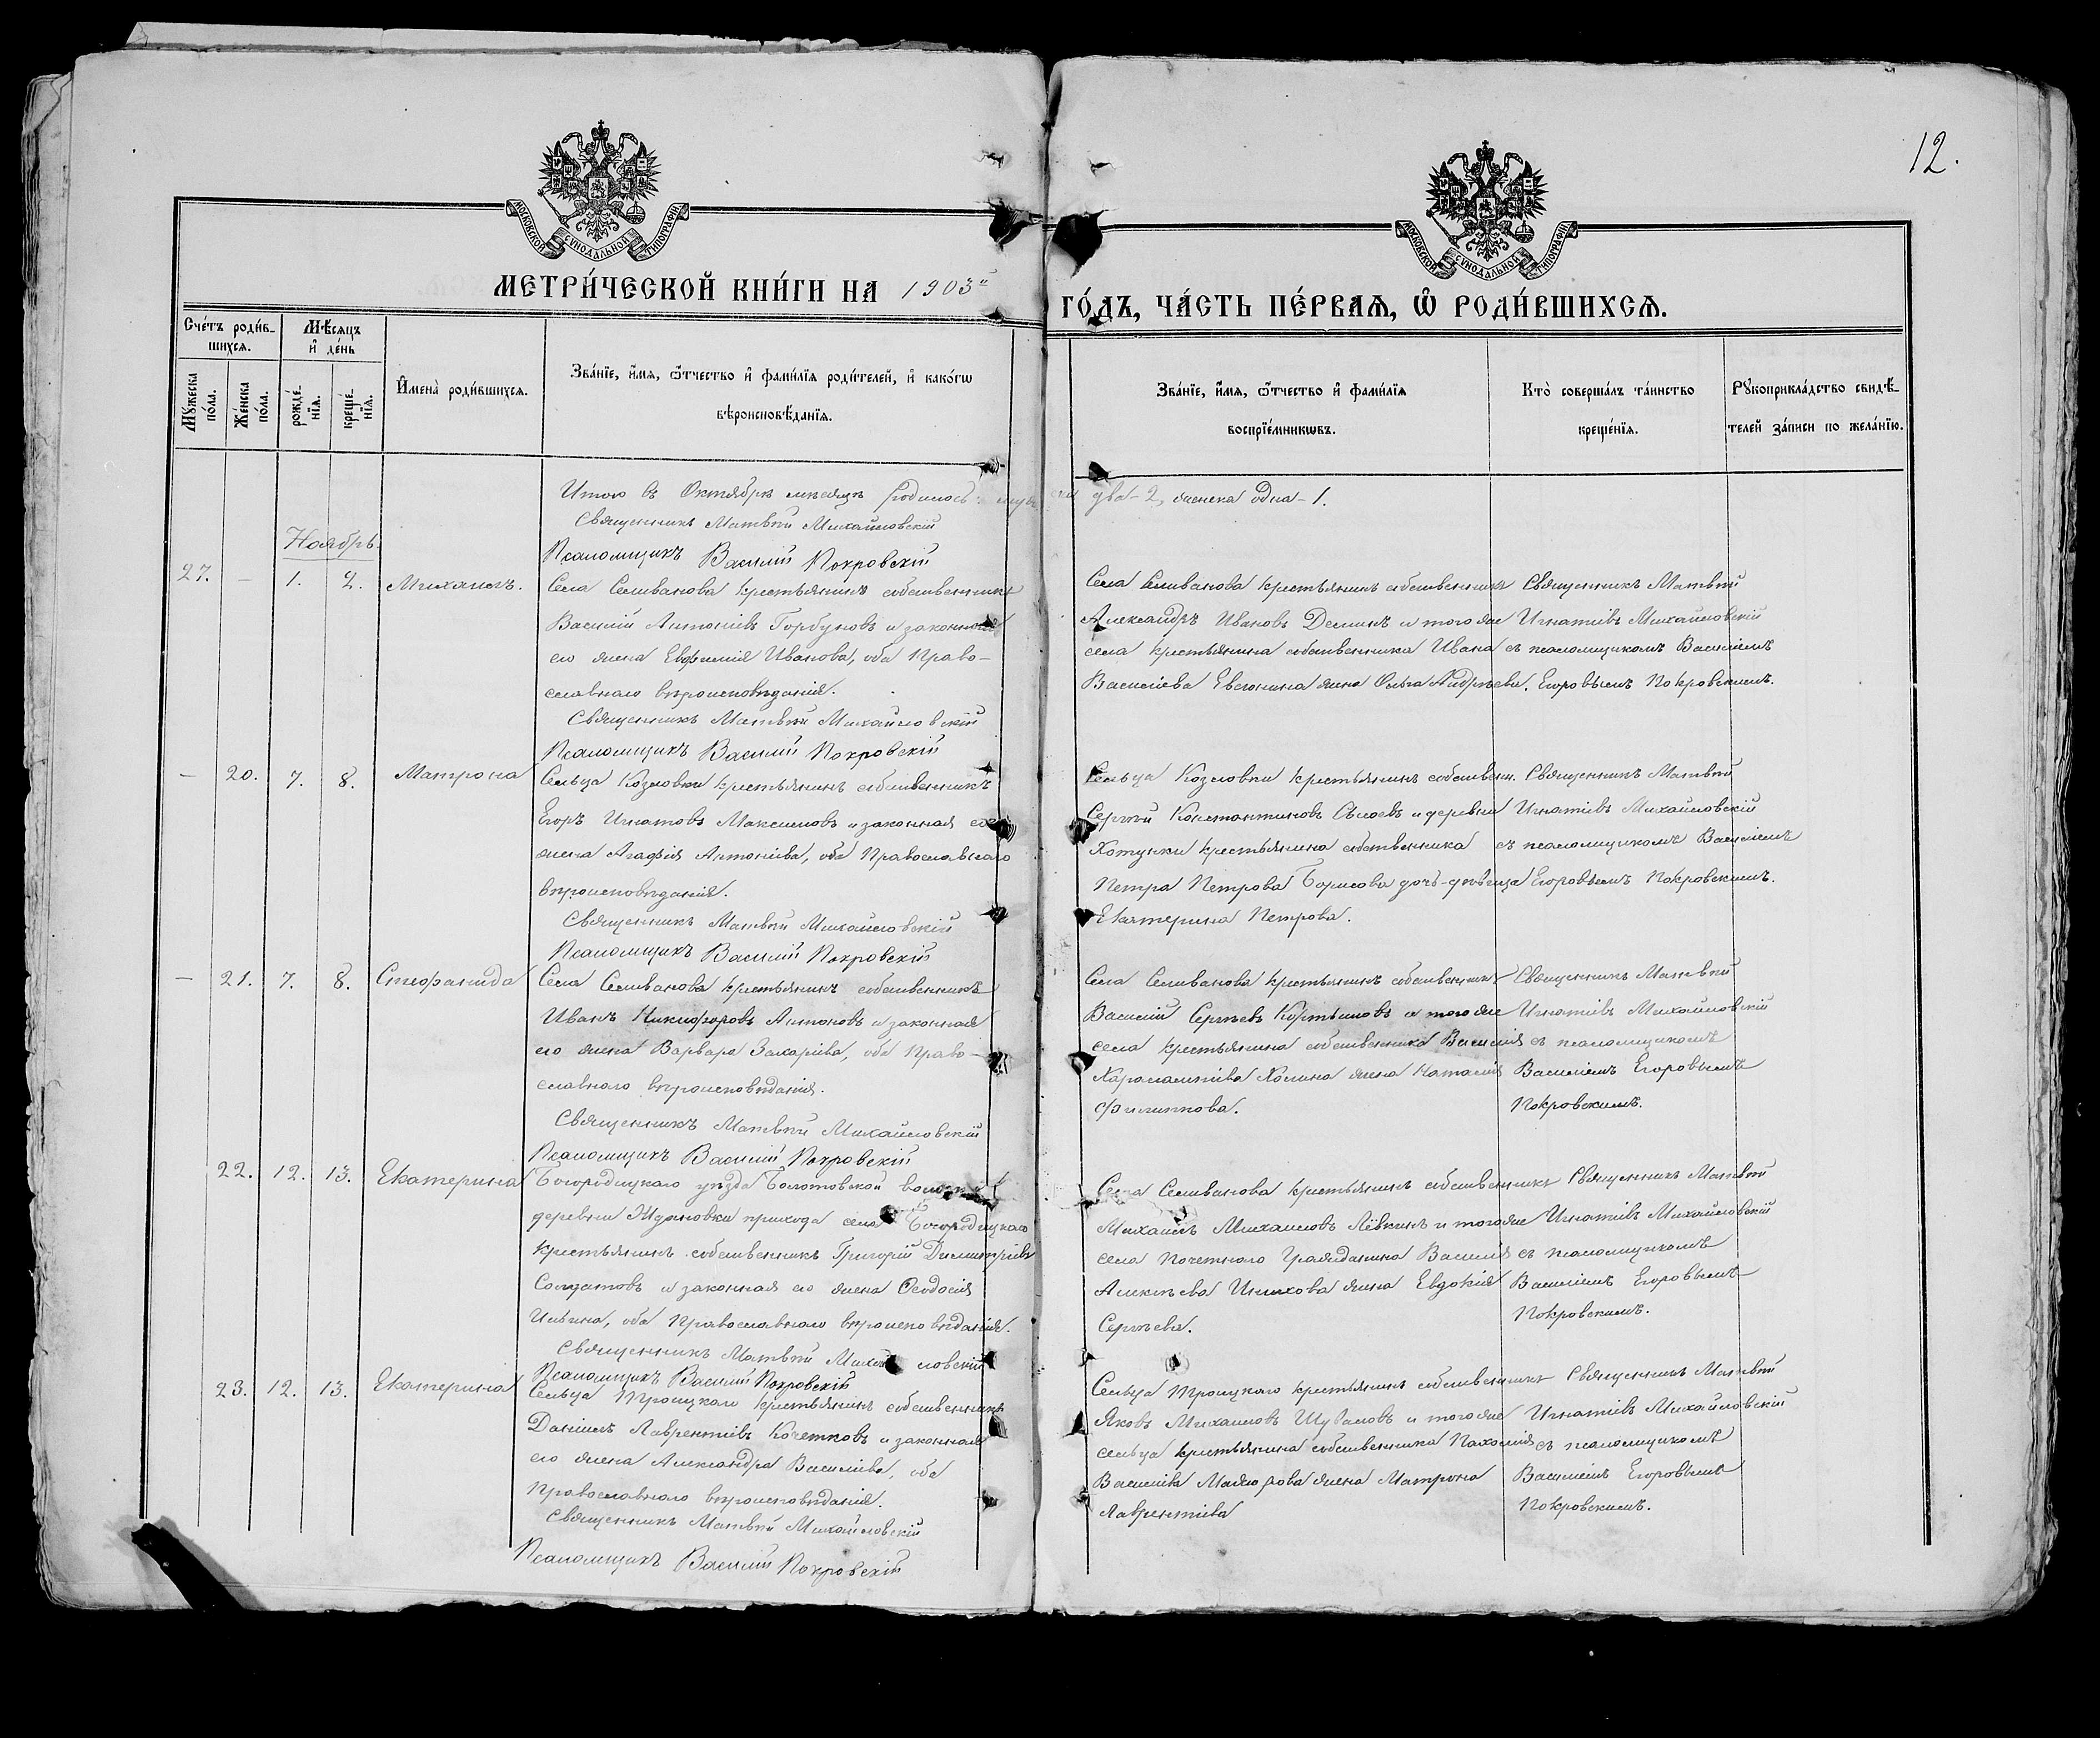 12.
МОСКОВСКОЙ СѴНОДАЛЬНОЙ ТИПОГРАФІИ
МОСКОВСКОЙ СѴНОДАЛЬНОЙ ТИПОГРАФІИ
МЕТРИ́ЧЕСКОЙ КНИ́ГИ НА 1903й ГО́ДЪ, ЧА́СТЬ ПЕ́РВАѦ, Ѡ РОДИ́ВШИХСѦ.
Сче́тъ роди́в-
шихся.
Мѣ́сяцъ
и҆ де́нь
Мꙋжеска
по́ла.
Же́нска
по́ла.
рожде́-
нїя.
креще́-
нїя.
И҆мена̀ роди́вшихся.
Зва́нїе, и҆́мя, ѻ҆́тчество и҆ фами́лїя роди́телей, и҆ како́гѡ
вѣроисповѣ́данїя.
Зва́нїе, и҆́мя, ѻ҆́тчество и҆ фами́лїя
воспрїе́мникѡвъ.
Кто̀ соверша́лъ та́инство
креще́нїя.
Рꙋкоприкла́дство свидѣ́-
телей за́писи по жела́нїю.
Итого въ Октябрѣ мѣсяцѣ родилось два - 2, женска одна - 1.
Священникъ Матвѣй Михайловскій
Псаломщикъ Василій Покровскій
Ноябрь.
27. - 1. 2. Михаилъ.
Села Селиванова крестьянинъ собственникъ
Василій Антоніевъ Горбуновъ и законная
его жена Евфимія Иванова, оба Право-
славнаго вѣроисповѣданія.
Священникъ Матвѣй Михайловскій
Псаломщикъ Василій Покровскій
Села Селиванова крестьянинъ собственникъ
Александръ Ивановъ Деминъ и того же
села крестьянина собственника Ивана
Василіева Евсонина жена Ольга Андрѣева.
Священникъ Матвѣй
Игнатіевъ Михайловскій
съ псаломщикомъ Василіемъ
Егоровымъ Покровскимъ.
- 20. 7. 8. Матрона
Сельца Козловки крестьянинъ собственникъ
Егоръ Игнатовъ Максимовъ и законная его
жена Агафія Антоніева, оба Православнаго
вѣроисповѣданія.
Священникъ Матвѣй Михайловскій
Псаломщикъ Василій Покровскій
Сельца Козловки крестьянинъ собственн.
Сергѣй Константиновъ Сысоевъ и деревни
Хотунки крестьянина собственника
Петра Петрова Борисова дочь-дѣвица
Екатерина Петрова.
Священникъ Матвѣй
Игнатіевъ Михайловскій
съ псаломщикомъ Василіемъ
Егоровымъ Покровскимъ.
- 21. 7. 8. Стефанида
Села Селиванова крестьянинъ собственникъ
Иванъ Никифоровъ Антоновъ и законная
его жена Варвара Захаріева, оба Право-
славнаго вѣроисповѣданія.
Священникъ Матвѣй Михайловскій
Псаломщикъ Василій Покровскій
Села Селиванова крестьянинъ собственникъ
Василій Сергѣевъ и того же
села крестьянина собственника Василія
Харлампіева Хомина жена Наталія
Филиппова.
Священникъ Матвѣй
Игнатіевъ Михайловскій
съ псаломщикомъ
Василіемъ Егоровымъ
Покровскимъ.
22. 12. 13. Екатерина
Богородицкаго уѣзда Болотовской волости
деревни Ждановки прихода села Богородицкаго
крестьянинъ собственникъ Григорій Димитріевъ
Солдатовъ и законная его жена Ѳеодосія
Ильина, оба Православнаго вѣроисповѣданія.
Священникъ Матвѣй Михайловскій
Псаломщикъ Василій Покровскій
Села Селиванова крестьянинъ собственникъ
Михаилъ Михаиловъ Лёвкинъ и того же
села почетнаго гражданина Василія
Алексѣева жена Евдокія
Сергѣева.
Священникъ Матвѣй
Игнатіевъ Михайловскій
съ псаломщикомъ
Василіемъ Егоровымъ
Покровскимъ.
23. 12. 13. Екатерина
Сельца Троицкаго крестьянинъ собственникъ
Даніилъ Лаврентіевъ Кочетковъ и законная
его жена Александра Василіева, оба
Православнаго вѣроисповѣданія.
Священникъ Матвѣй Михайловскій
Псаломщикъ Василій Покровскій
Сельца Троицкаго крестьянинъ собственникъ
Яковъ Михаиловъ Шуваловъ и того же
сельца крестьянина собственника Пахомія
Василіева Маіорова жена Матрона
Лаврентіева
Священникъ Матвѣй
Игнатіевъ Михайловскій
съ псаломщикомъ
Василіемъ Егоровымъ
Покровскимъ.